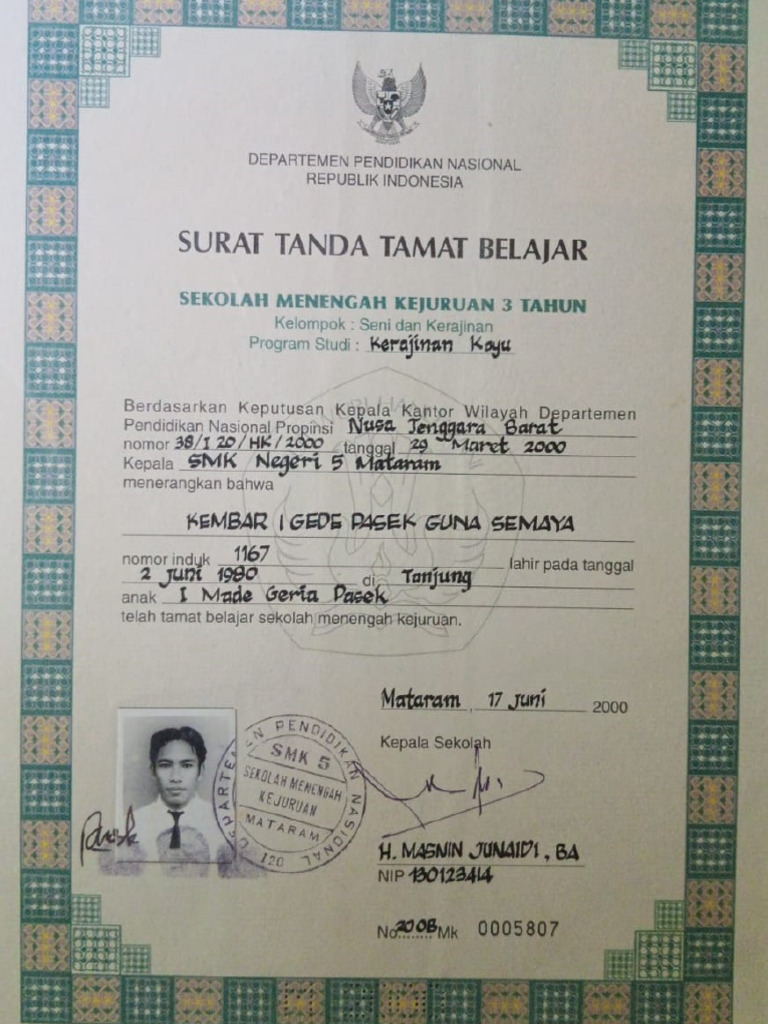 DEPARTEMEN PENDIDIKAN NASIONAL
REPUBLIK INDONESIA
SURAT TANDA TAMAT BELAJAR
SEKOLAH MENENGAH KEJURUAN 3 TAHUN
Kelompok : Seni dan Kerajinan
Program Studi : Kerajinan Kayu
Berdasarkan Keputusan Kepala Kantor Wilayah Departemen
Pendidikan Nasional Propinsi Nusa Tenggara Barat
nomor 38/I 20/HK/2000 tanggal 29 Maret 2000
Kepala SMK Negeri 5 Mataram
menerangkan bahwa
KEMBAR I GEDE PASEK GUNA SEMAYA
nomor induk 1167 lahir pada tanggal
2 Juni 1980 di Tanjung
anak I Made Geria Pasek
telah tamat belajar sekolah menengah kejuruan.
Mataram, 17 Juni 2000
Kepala Sekolah
DEPARTEMEN PENDIDIKAN NASIONAL
SMK 5
SEKOLAH MENENGAH
KEJURUAN
MATARAM
120
H. MASNIN JUNAIDI, BA
NIP 130123414
No. 20 OB Mk 0005807